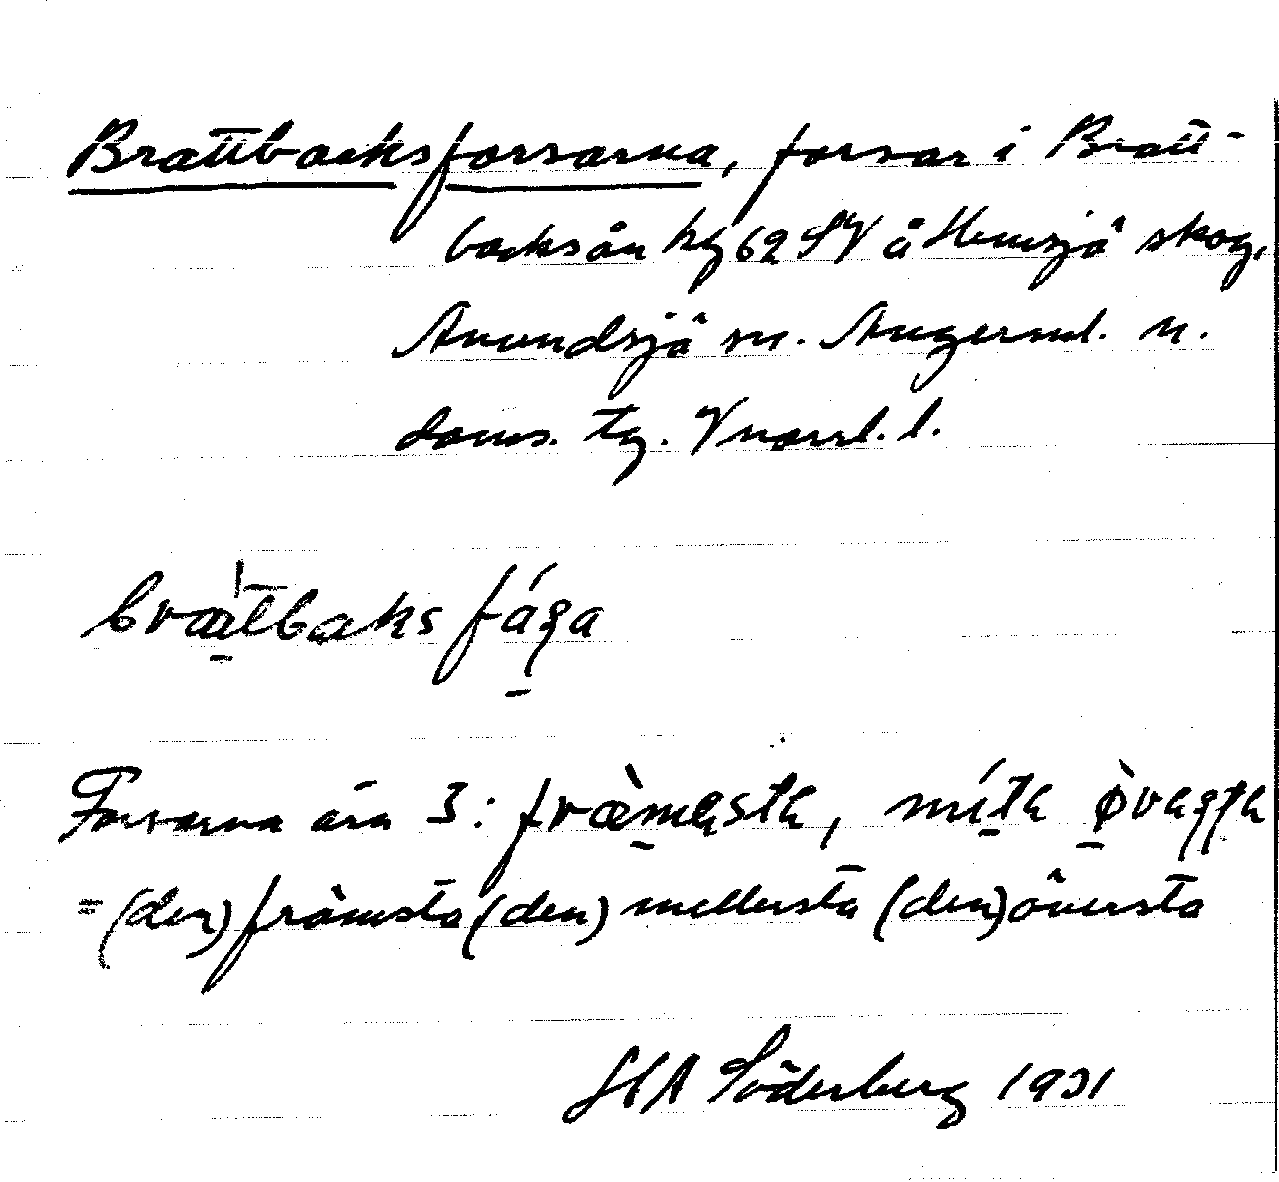 Brattbacksforsarna, forsar i Bratt-
backsån hg 62 SV å Hemsjö skog,
Anundsjö sn. Ångerml. n.
doms. tg. Vnorrl. l.
brætbaks fága
Forsarna äro 3: fræmesta, míta
= (den) främsta (den) mellersta (den) översta
HA Söderberg 1931